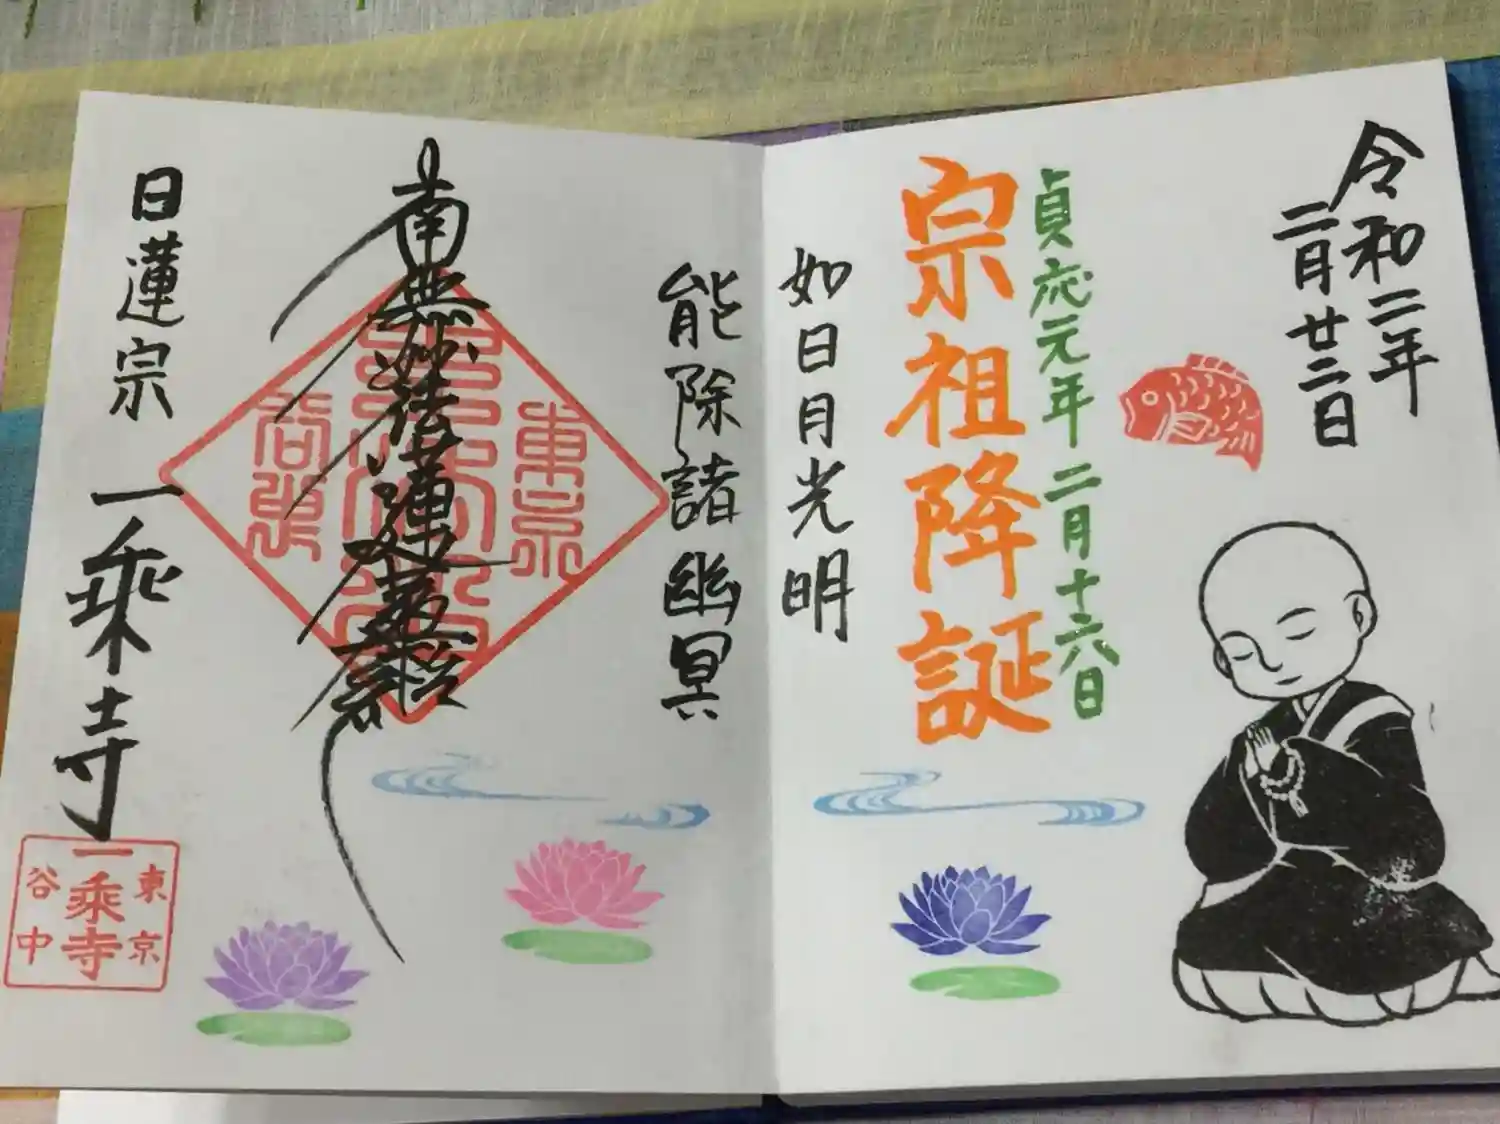 令和二年
二月廿二日
貞応元年二月十六日
宗祖降誕
如日月光明
能除諸幽冥
南無妙法蓮華経
日蓮宗
一乗寺
東京
一乗寺
谷中
東京